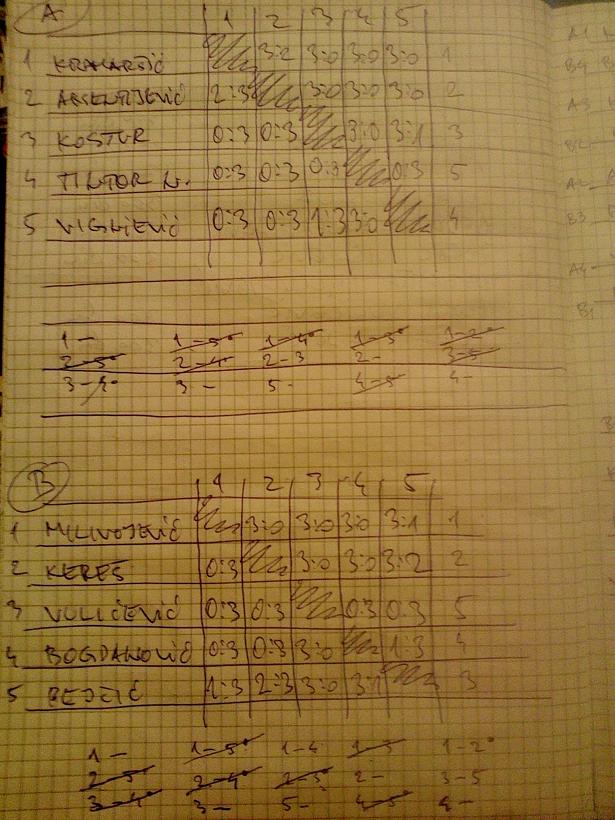 A
1 2 3 4 5
1 3:2 3:0 3:0 3:0 1
2 2:3 3:0 3:0 3:0 2
3 KOSTUR 0:3 0:3 3:0 3:1 3
4 TINTOR N. 0:3 0:3 0:3 0:3 5
5 0:3 0:3 1:3 3:0 4
1 - 1-5 1-4 1-3 1-2
2-5 2-4 2-3 2- 3-5
3-4 3 - 5- 4-5 4-
B
1 2 3 4 5
1 MILIVOJEVIĆ 3:0 3:0 3:0 3:1 1
2 KEREŠ 0:3 3:0 3:0 3:2 2
3 VULIĆEVIĆ 0:3 0:3 0:3 0:3 5
4 BOGDANOVIĆ 0:3 0:3 3:0 1:3 4
5 1:3 2:3 3:0 3:1 3
1 - 1-5 1-4 1-3 1-2
2-5 2-4 2-3 2- 3-5
3-4 3- 5- 4-5 4-